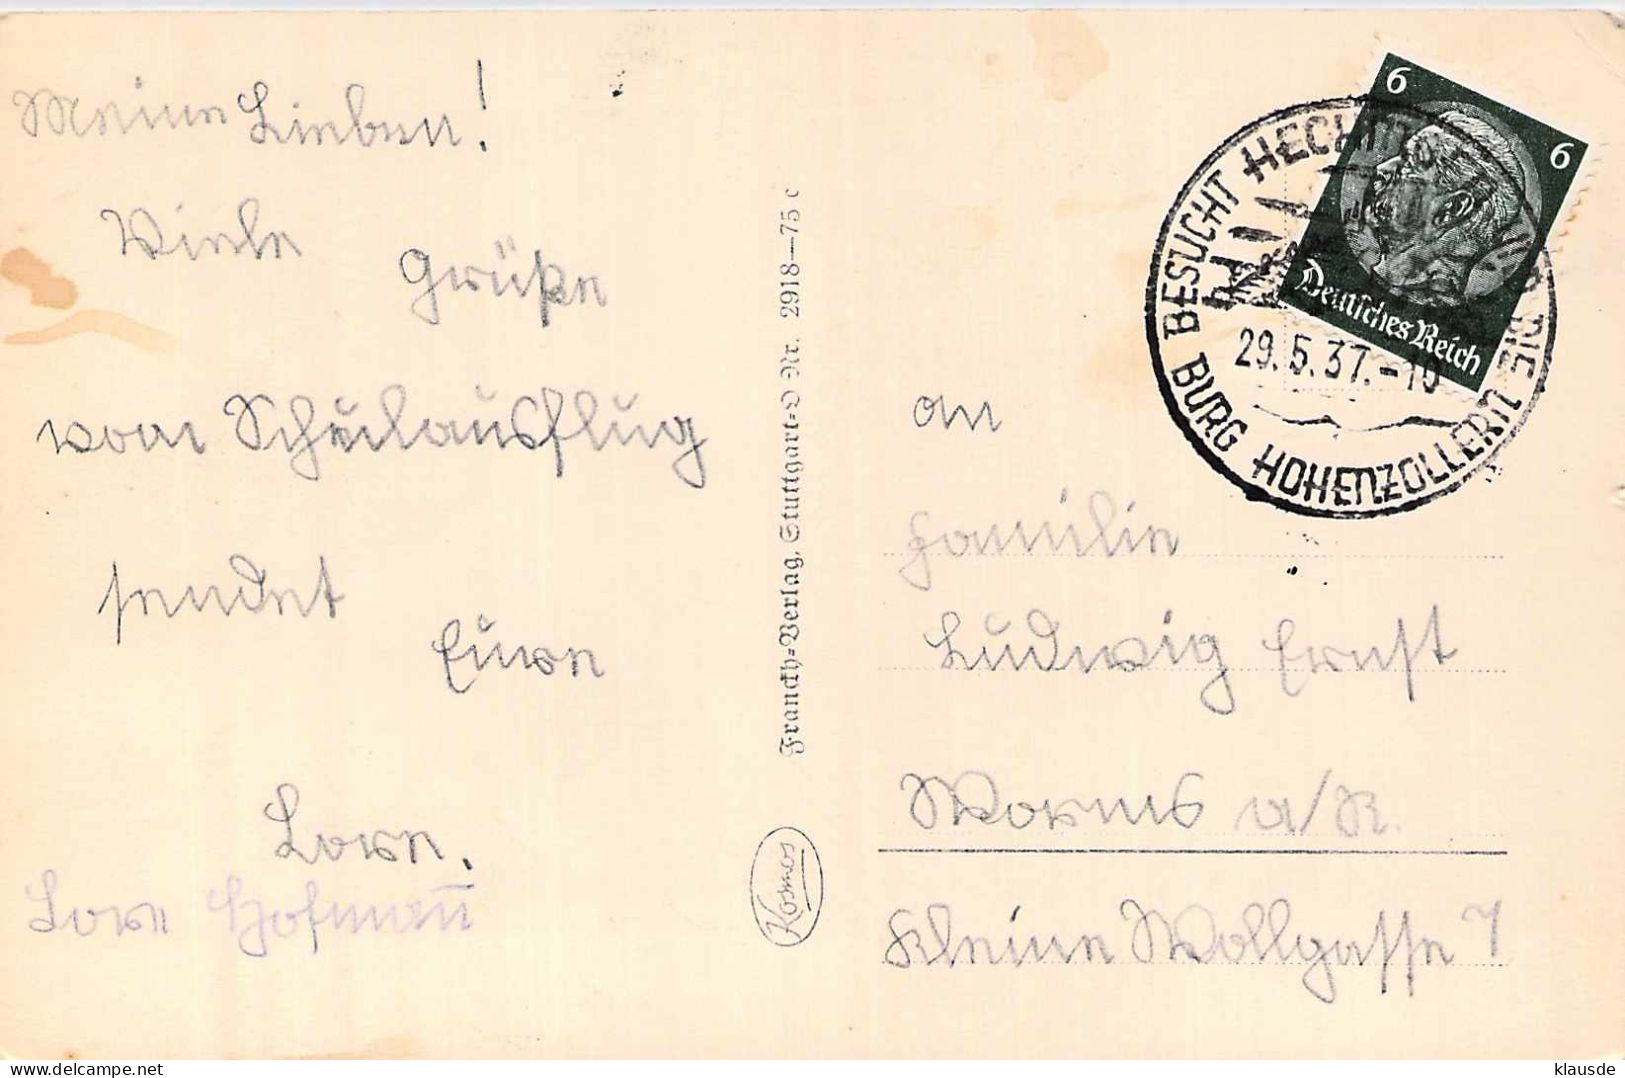 Meine Lieben!
Viele
Grüße
vom Schulausflug
sendet
Eure
Lore.
Lore Hofmann̄
Franckh-Verlag, Stuttgart-O Nr. 2918—75 c
Kosmos
6
6
Deutsches Reich
BESUCHT DIE
BURG HOHENZOLLERN
29.5.37.-10
an
Familie
Ludwig Ernst
Worms a/R.
Kleine Wollgasse 7
delcampe.net
klausde